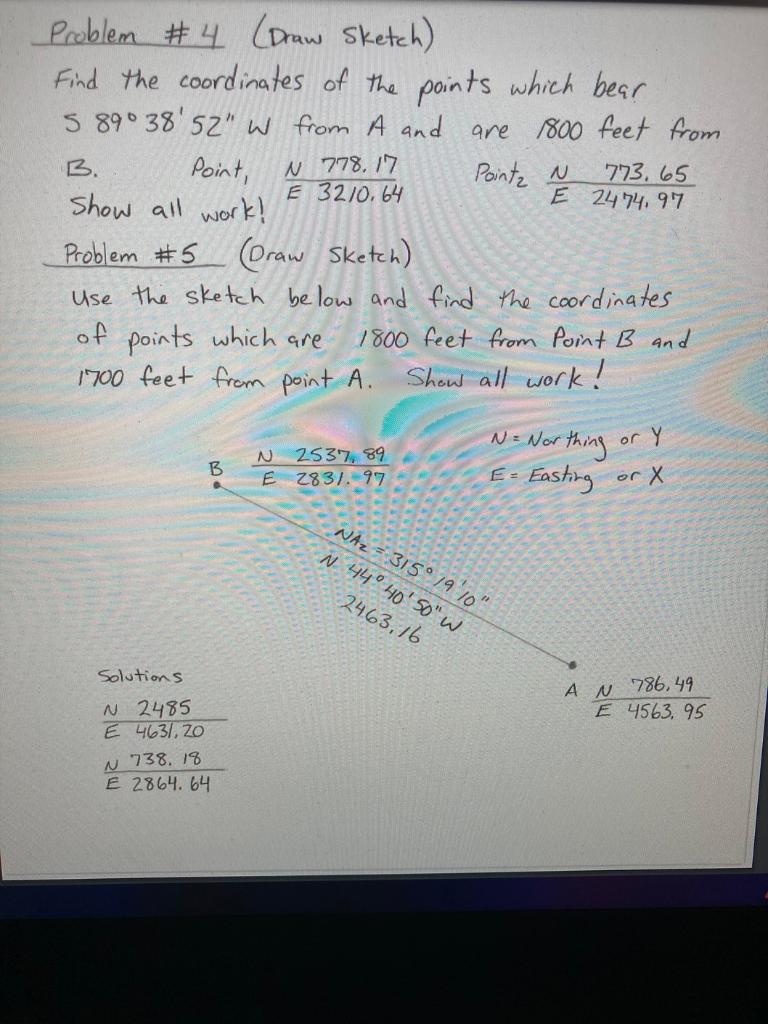 Problem # 4 (Draw Sketch)
Find the coordinates of the points which bear
S 89° 38' 52" W from A and are 1800 feet from
B. Point, N 778.17 Point2 N 773.65
E 3210.64 E 2474.97
Show all work!
Problem #5 (Draw Sketch)
Use the sketch below and find the coordinates
of points which are 1800 feet from Point B and
1700 feet from point A. Show all work!
N = Northing or Y
E = Easting or X
B N 2537.89
E 2831.97
NAz = 315° 19' 10"
N 44° 40' 50" W
2463.16
A N 786.49
E 4563.95
Solutions
N 2485
E 4631.20
N 738.18
E 2864.64